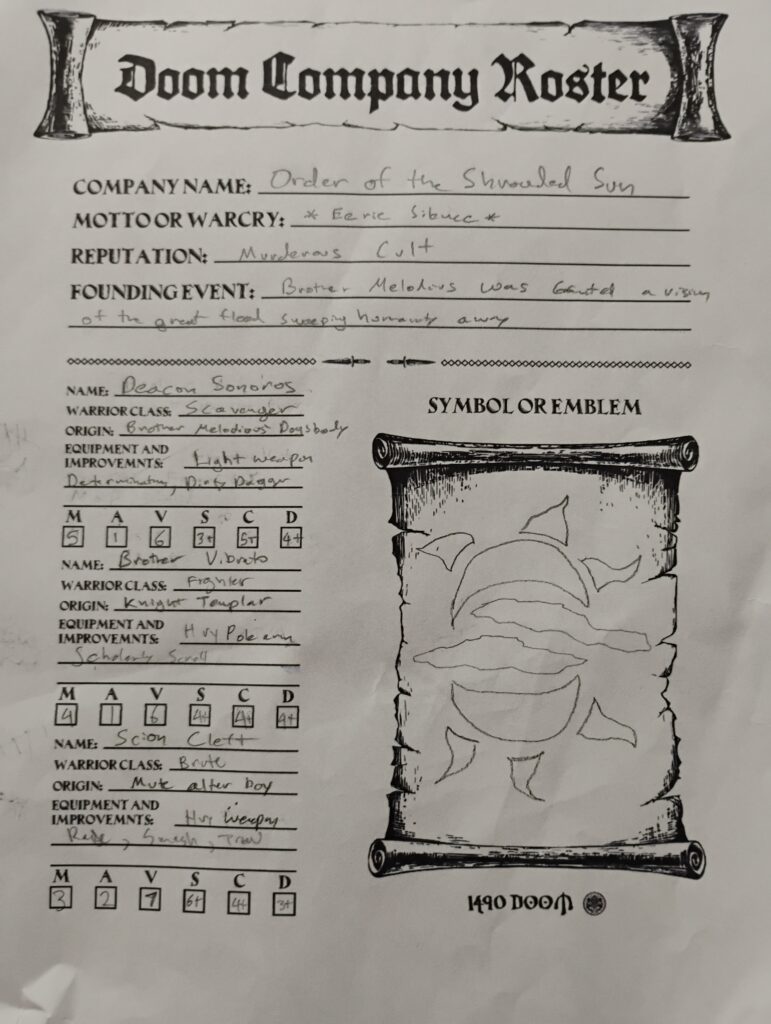 Doom Company Roster
COMPANY NAME: Order of the Shrouded Sun
MOTTO OR WARCRY: * Eerie Silence *
REPUTATION: Murderous Cult
FOUNDING EVENT: Brother Melodius was a vision
of the great flood sweeping humanity away
NAME: Deacon Sonoros
WARRIOR CLASS: Scavenger
ORIGIN: Brother Melodious Dogsbody
EQUIPMENT AND
IMPROVEMNTS: Light weapon
Determination, Dirty Dagger
M A V S C D
5 1 6 3+ 5+ 4+
NAME: Brother Vibrato
WARRIOR CLASS: Fighter
ORIGIN: Knight Templar
EQUIPMENT AND
IMPROVEMNTS: Hvy Pole arm
Scholarly Scroll
M A V S C D
4 1 6 4+ 4+ 4+
NAME: Scion Cleft
WARRIOR CLASS: Brute
ORIGIN: Mute alter boy
EQUIPMENT AND
IMPROVEMNTS: Hvy Weapon
Smash
M A V S C D
3 2 7 6+ 4+ 3+
SYMBOL OR EMBLEM
1490 DOOM